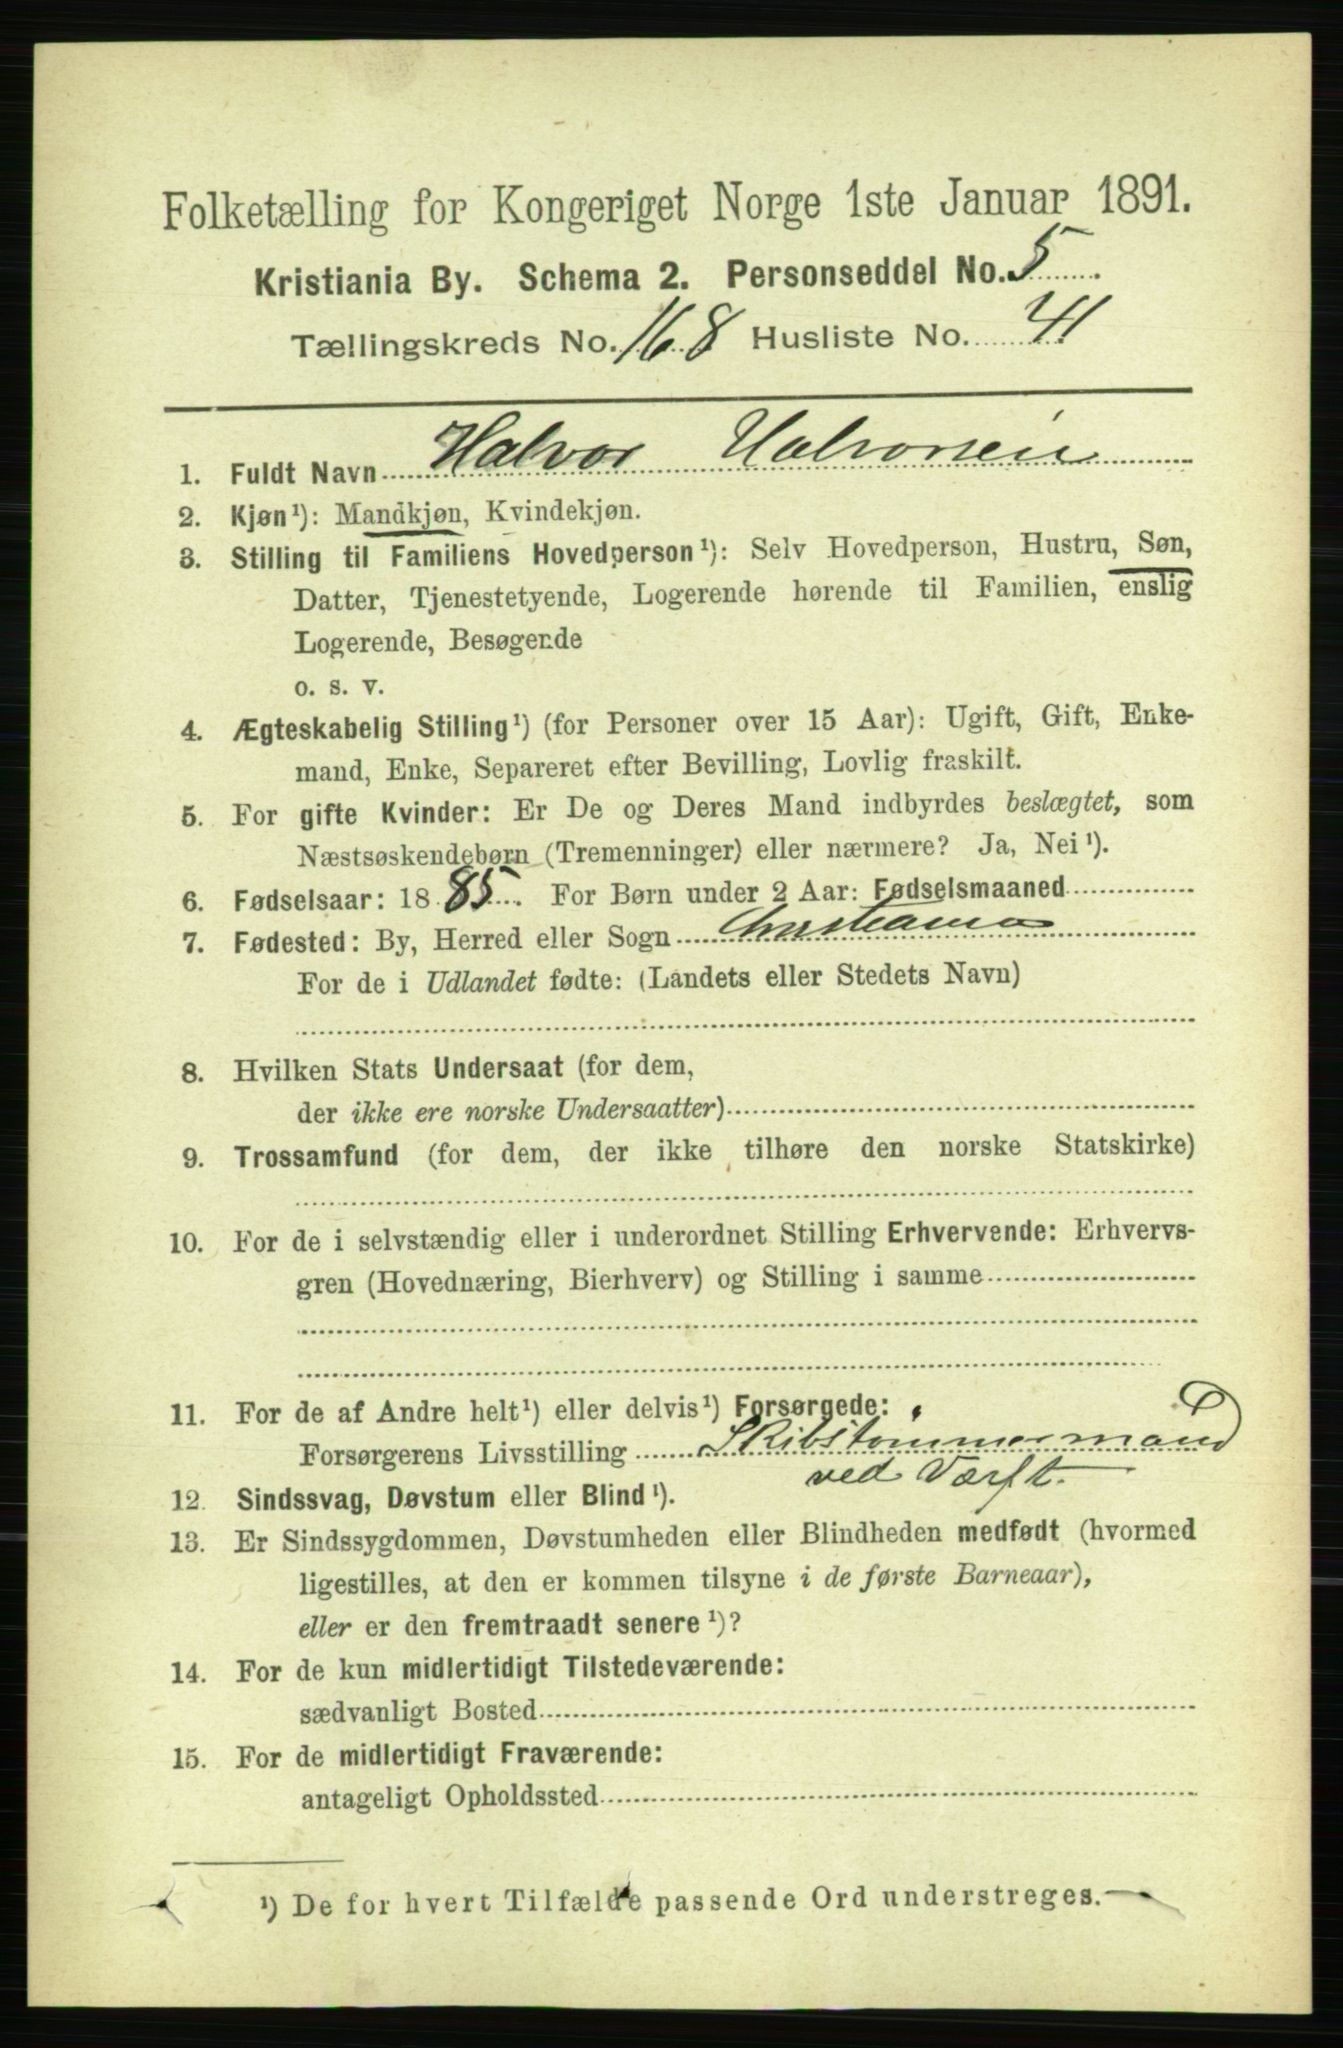 Folketælling for Kongeriget Norge 1ste Januar 1891.
Kristiania By. Schema 2. Personseddel No. 5
Tællingskreds No. 168 Husliste No. 41
1. Fuldt Navn Halvor Halvorsen
2. Kjøn¹): Mandkjøn, Kvindekjøn.
3. Stilling til Familiens Hovedperson¹): Selv Hovedperson, Hustru, Søn,
Datter, Tjenestetyende, Logerende hørende til Familien, enslig
Logerende, Besøgende
o. s. v.
4. Ægteskabelig Stilling¹) (for Personer over 15 Aar): Ugift, Gift, Enke-
mand, Enke, Separeret efter Bevilling, Lovlig fraskilt.
5. For gifte Kvinder: Er De og Deres Mand indbyrdes beslægtet, som
Næstsøskendebørn (Tremenninger) eller nærmere? Ja, Nei¹).
6. Fødselsaar: 1885. For Børn under 2 Aar: Fødselsmaaned
7. Fødested: By, Herred eller Sogn Christiania
For de i Udlandet fødte: (Landets eller Stedets Navn)
8. Hvilken Stats Undersaat (for dem,
der ikke ere norske Undersaatter)
9. Trossamfund (for dem, der ikke tilhøre den norske Statskirke)
10. For de i selvstændig eller i underordnet Stilling Erhvervende: Erhvervs-
gren (Hovednæring, Bierhverv) og Stilling i samme
11. For de af Andre helt¹) eller delvis¹) Forsørgede:
Forsørgerens Livsstilling Skibstømmermand
ved Værft.
12. Sindssvag, Døvstum eller Blind¹).
13. Er Sindssygdommen, Døvstumheden eller Blindheden medfødt (hvormed
ligestilles, at den er kommen tilsyne i de første Barneaar),
eller er den fremtraadt senere¹)?
14. For de kun midlertidigt Tilstedeværende:
sædvanligt Bosted
15. For de midlertidigt Fraværende:
antageligt Opholdssted
¹) De for hvert Tilfælde passende Ord understreges.